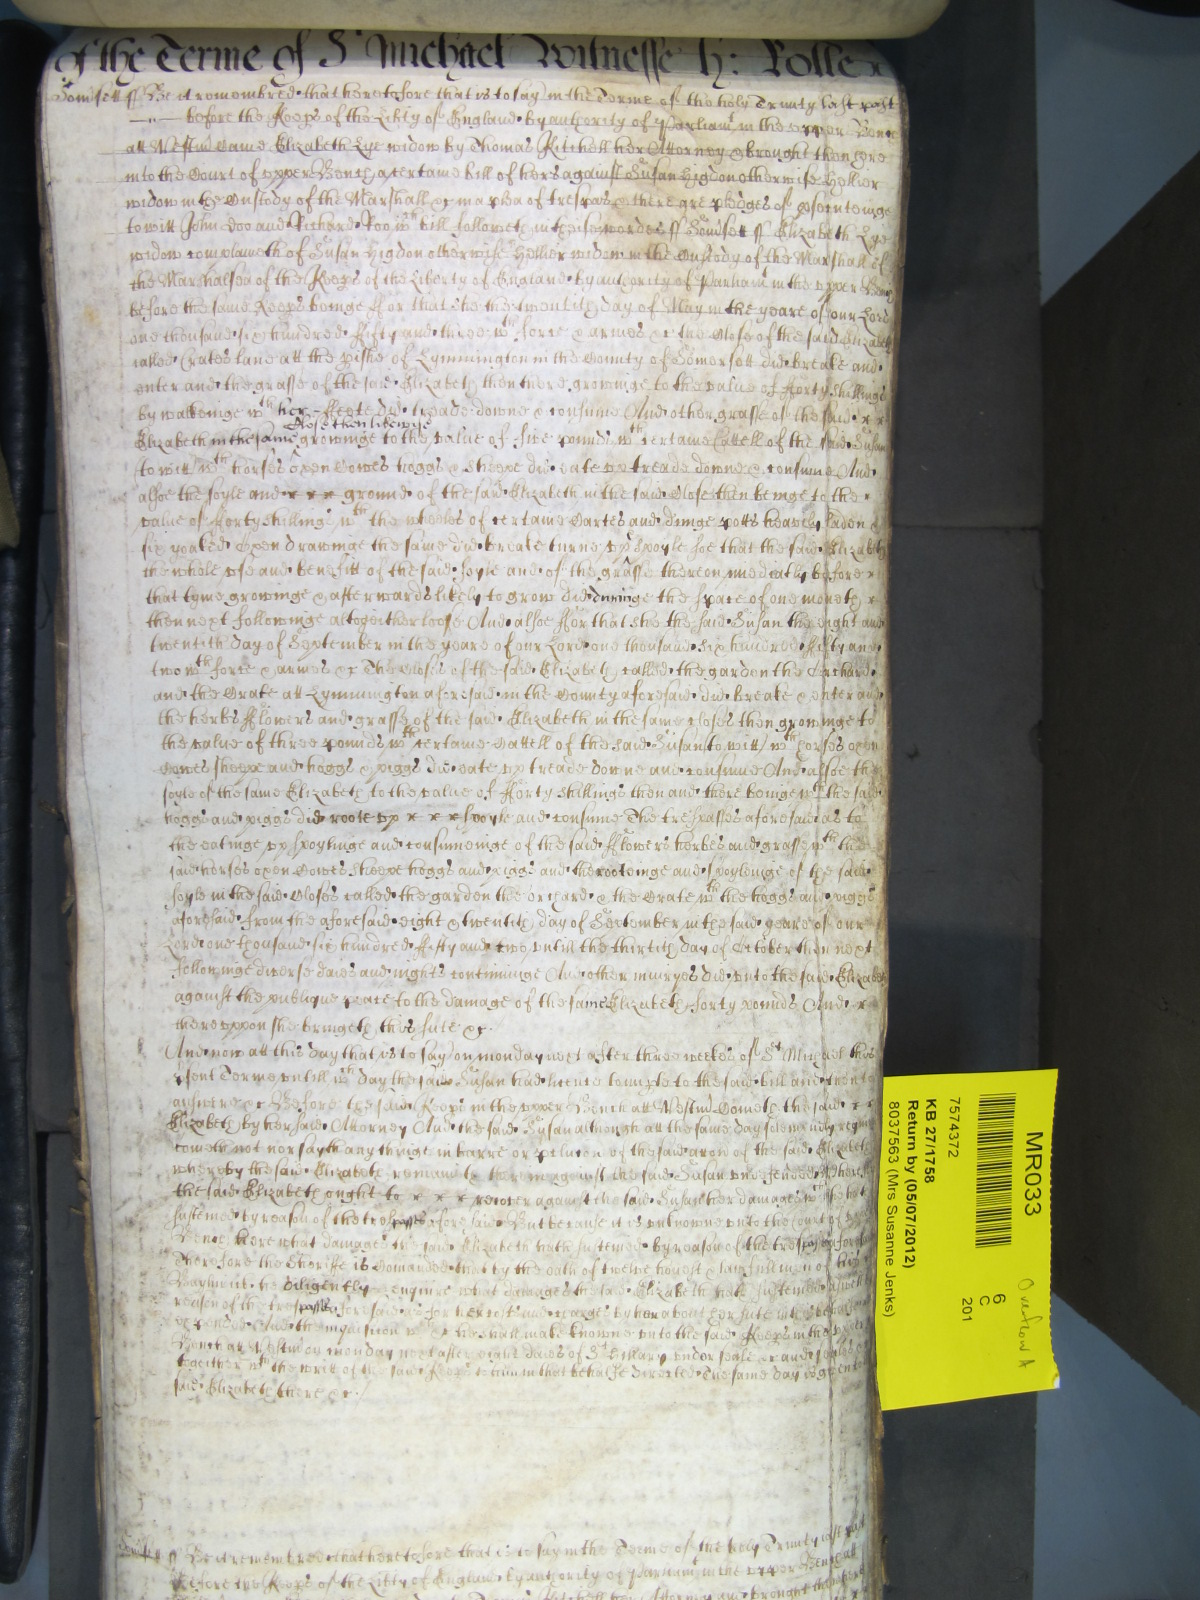 of the Terme of St Michael Witnesse H: Rolle
Somsett ss Be it remembred that heretofore that is to say in the Terme of the holy Trinity last past
before the Keeps of the Libty of England by authority of Parliamt in the upper Bench
att Westm Came Elizabeth Lye widow by Thomas Kitchell her Attorney & brought then here
into the Court of upper Bench a certame bill of hers against Susan Higdon otherwise Hellier
widow in the Custody of the Marshall &c in a plea of trespas & there are pledges of psecutinge
to witt John Doo and Richard Roo wch bill followeth in theis wordes ss Somsett ss Elizabeth Lye
widow complameth of Susan Higdon otherwise Hellier widow in the Custody of the Marshall of
the Marshalsea of the Keeps of the Liberty of England by authority of Parliamt in the upper Bench
before the same Keeps beinge ffor that she the twentith day of May in the yeare of our Lord
one thousand six hundred ffifty and three wth force & armes &c the Close of the said Elizabeth
called Crates lane att the pishe of Lymmington in the County of Somersett did breake and
enter and the grasse of the said Elizabeth then there growinge to the value of fforty shillings
by walkeinge wth her ffeete did treade downe & consume And other grasse of the said
Close then likewise
Elizabeth in the same growinge to the value of five pounds wth certame Cattell of the said Susan
to witt wth horses oxen Cowes hoggs & sheepe did eate up treade downe & consume And
alsoe the soyle and ground of the said Elizabeth in the said Close then beinge to the
value of fforty shillings wth the wheeles of certame Cartes and dunge potts heavely laden &
six yoaked Oxen drawinge the same did breake turne up & spoyle soe that the said Elizabeth
the whole use and benefitt of the said soyle and of the grasse thereon imediatly before
that tyme growinge & afterwards likely to grow did duringe the space of one moneth
then next followinge altogeither loose And alsoe ffor that she the said Susan the eight and
twentith day of September in the yeare of our Lord one thousand six hundred ffifty and
two wth force & armes &c The closes of the said Elizabeth called the garden the Orchard
and the Crate att Lymmington aforesaid in the County aforesaid did breake & enter and
the herbs fflowers and grasse of the said Elizabeth in the same closes then growinge to
the value of three pounds wth certame Cattell of the said Susan to witt wth horses oxen
Cowes sheepe and hoggs & piggs did eate up treade downe and consume And alsoe the
soyle of the same Elizabeth to the value of fforty shillings then and there beinge wth the said
hoggs and piggs did roote up spoyle and consume The trespasses aforesaid as to
the eatinge up spoylinge and consumeinge of the said fflowers herbes and grasse wth the
said horses oxen Cowes sheepe hoggs and piggs and the rooteinge and spoyleinge of the said
soyle in the said Closes called the garden the orchard & the Crate wth the hoggs and piggs
aforesaid from the aforesaid eight & twentith day of September in the said yeare of our
Lord one thousand six hundred ffifty and two untill the thirtith day of October then next
followinge diverse daies and nights continuinge And other iniuryes did unto the said Elizabeth
against the publique peace to the damage of the same Elizabeth forty pounds And
thereuppon she bringeth this sute &c.
And now at this day that is to say on monday next after three weekes of St Michael this
psent Terme untill wch day the said Susan had licence to imple to the said bill and then to
answere &c Before the said Keeps in the upper Bench att Westm Cometh the said
Elizabeth by her said Attorney And the said Susan although att the same day solemnly
cometh not nor sayth any thinge in barre or pclusion of the said accon of the said Elizabeth
whereby the said Elizabeth remaineth therein against the said Susan undefended
the said Elizabeth ought to recover against the said Susan her damages wch she hath
susteined by reason of the trespasses aforesaid But because it is unknowne unto the Court of
Bench here what damages the said Elizabeth hath susteined by reason of the trespasses aforesaid
Therefore the Sheriffe is Comanded that by the oath of twelve honest & lawfull men of his
Bayliwicke he diligently enquire what damages the said Elizabeth hath susteined aswell
reason of the trespasses aforesaid as for her costs and charges by her about her sute in that behalfe
expended And the inquisicon he shall make knowne unto the said Keeps in the upper
Bench att Westm on monday next after eight daies of St Hillary under seale &c and seales of
together wth the writt of the said Keeps to him in that behalfe directed The same day is given to
said Elizabeth there &c.
Somsett ss Be it remembred that heretofore that is to say in the Terme of the holy Trinity last past
before the Keeps of the Libty of England by authority of Parliamt in the upper Bench att
Kitchell her Attorney and brought then here
MR033
7574372
KB 27/1758
Return by (05/07/2012)
8037563 (Mrs Susanne Jenks)
6
C
201
Overflow A